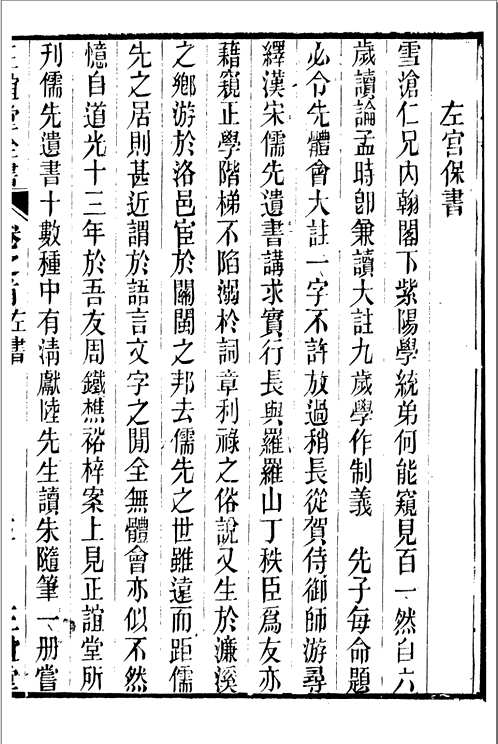 左宮保書
雪滄仁兄內翰閣下紫陽學統弟何能窺見百一然自六
歲讀論孟時卽兼讀大註九歲學作制義　先子每命題
必令先體會大註一字不許放過稍長從賀侍御師游尋
繹漢宋儒先遺書講求實行長與羅羅山丁秩臣爲友亦
藉窺正學階梯不陷溺於詞章利祿之俗說又生於濂溪
之鄉游於洛邑宦於關閩之邦去儒先之世雖遠而距儒
先之居則甚近謂於語言文字之閒全無體會亦似不然
憶自道光十三年於吾友周鐵樵裕梓案上見正誼堂所
刋儒先遺書十數種中有淸獻陸先生讀朱隨筆一册嘗
正誼堂全書 卷之首左書 正誼堂